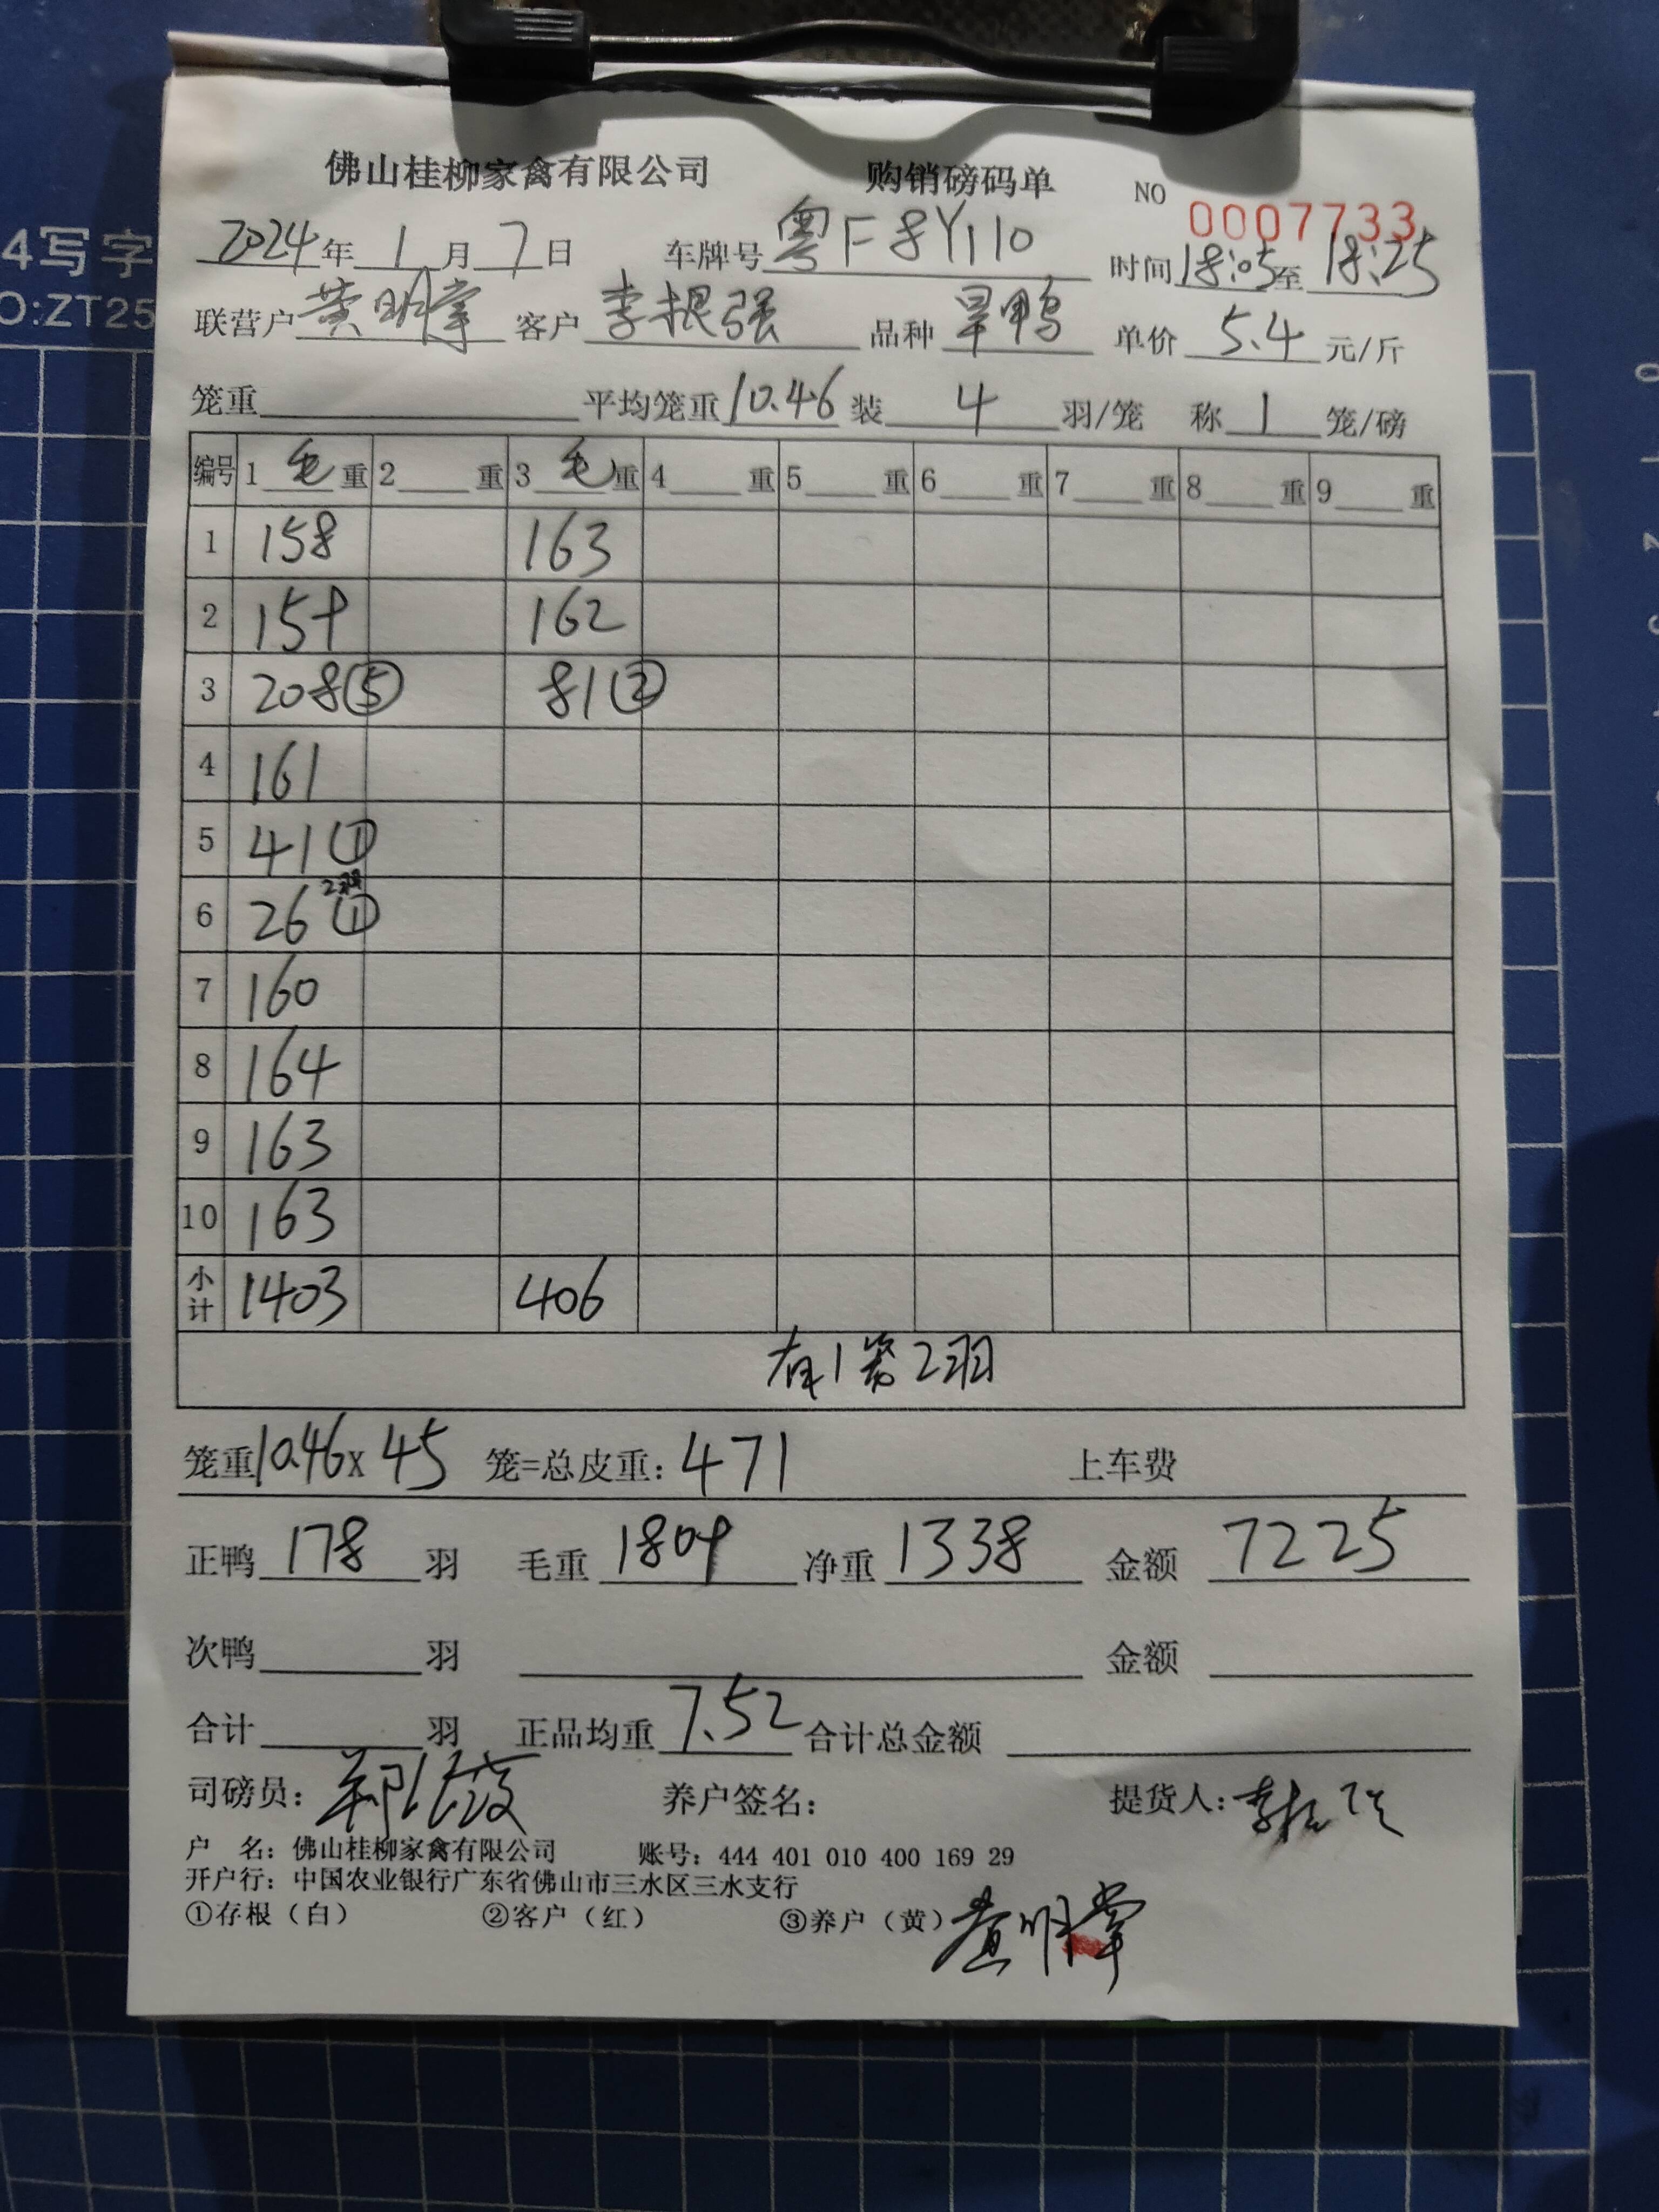 4写字
O:ZT25
佛山桂柳家禽有限公司 购销磅码单 NO 0007733
2024年1月7日 车牌号 粤F8Y110 时间18:05至18:25
联营户 黄明掌 客户 李根强 品种 旱鸭 单价 5.4 元/斤
笼重 平均笼重10.46 装 4 羽/笼 称 1 笼/磅
编号 1 毛 重 2 重 3 毛 重 4 重 5 重 6 重 7 重 8 重 9 重
1 158 163
2 159 162
3 208⑤ 81②
4 161
5 41①
6 26① 2羽
7 160
8 164
9 163
10 163
小计 1403 406
有1笼2羽
笼重10.46x 45 笼=总皮重: 471 上车费
正鸭 178 羽 毛重 1809 净重 1338 金额 7225
次鸭 羽 金额
合计 羽 正品均重 7.52 合计总金额
司磅员: 养户签名: 提货人: 李根强
户 名: 佛山桂柳家禽有限公司 账号: 444 401 010 400 169 29
开户行: 中国农业银行广东省佛山市三水区三水支行
①存根（白） ②客户（红） ③养户（黄） 黄明掌